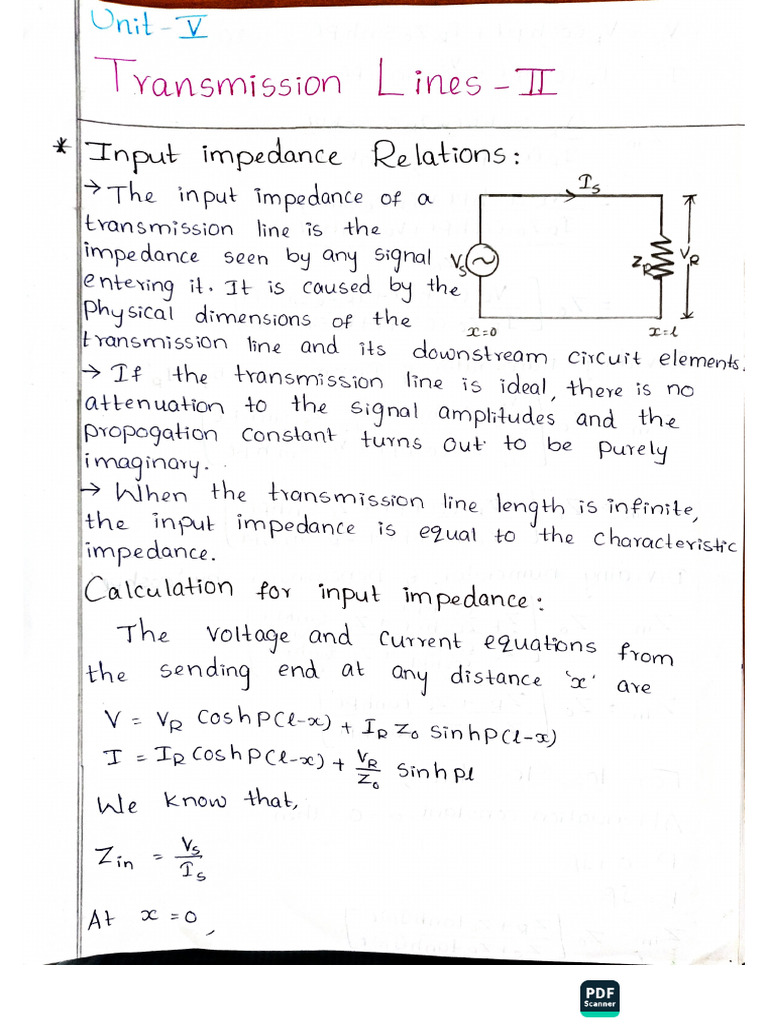 Unit - V
Transmission Lines - II
* Input impedance Relations:
→ The input impedance of a
transmission line is the
impedance seen by any signal
entering it. It is caused by the
Physical dimensions of the
transmission line and its downstream circuit elements.
Is
Vs
ZR
VR
x=0
x=l
→ If the transmission line is ideal, there is no
attenuation to the signal amplitudes and the
propogation constant turns out to be purely
imaginary.
→ When the transmission line length is infinite,
the input impedance is equal to the characteristic
impedance.
Calculation for input impedance:
The voltage and current equations from
the sending end at any distance 'x' are
V = VR Cosh P(l-x) + IR Z0 sinh P(l-x)
I = IR Cosh P(l-x) + VR/Z0 sinh pl
We know that,
Zin = Vs/Is
At x = 0,
PDF
Scanner